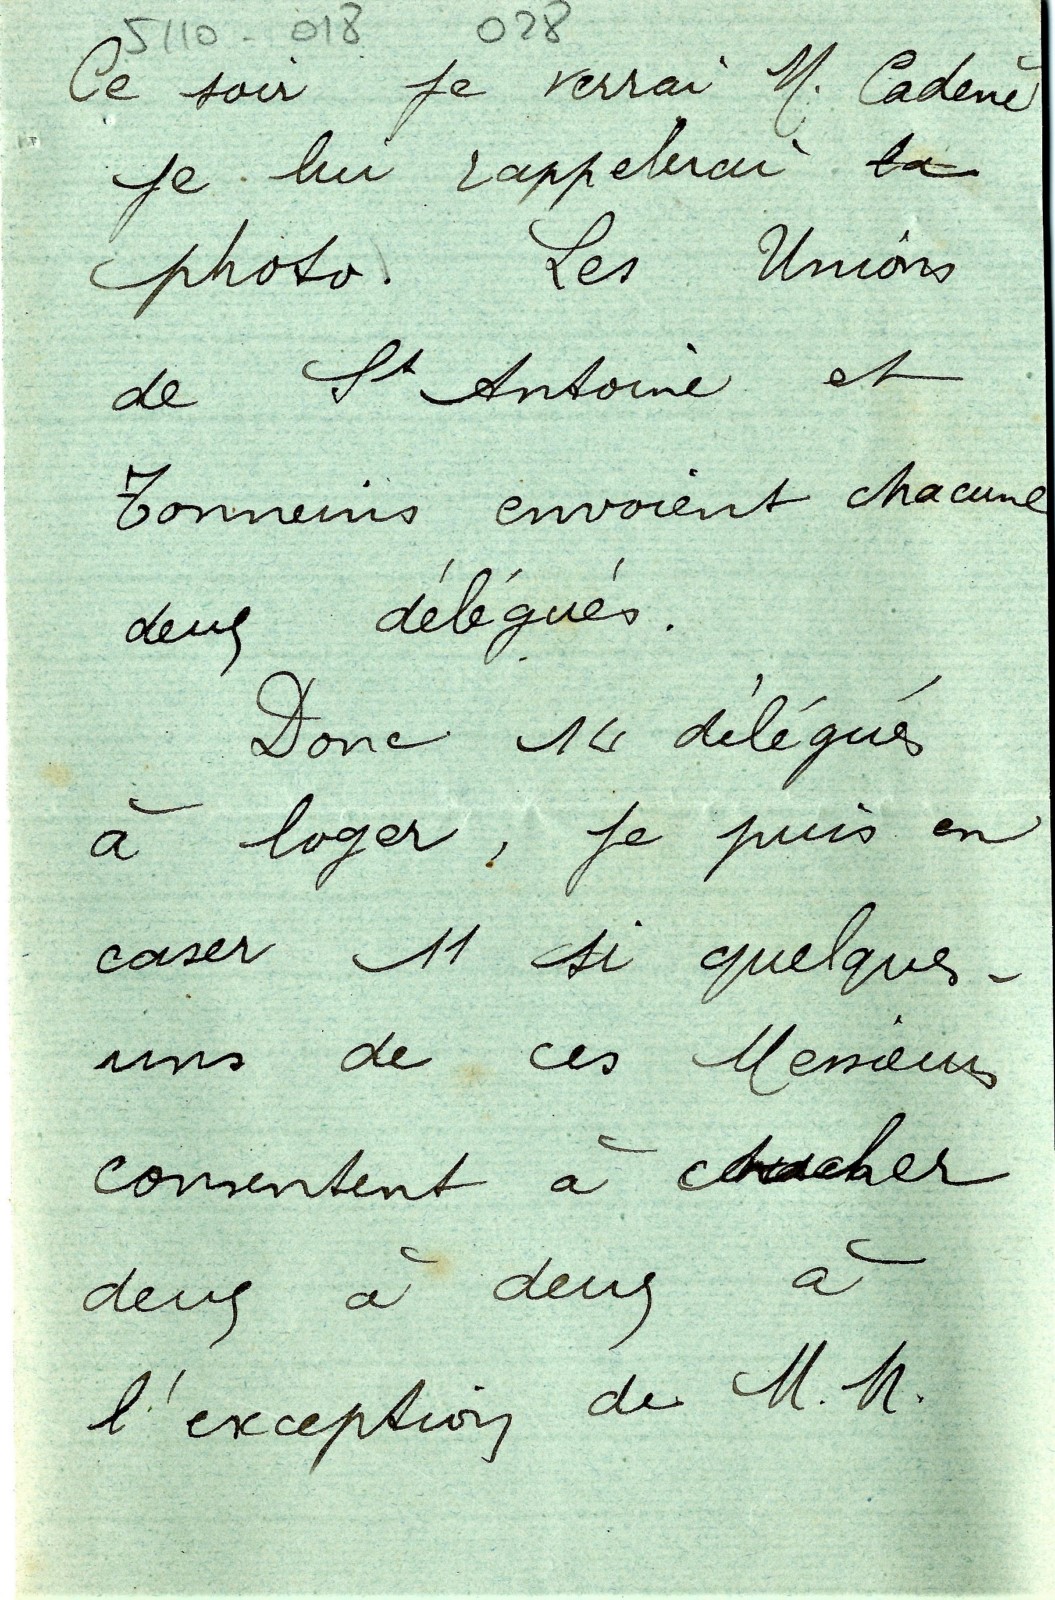 5110-018 028
Ce soir je verrai M. Cadène
je lui rappelerai la
photo. Les Unions
de St Antoine et
Tonneins envoient chacune
deux délégués.
Donc 14 délégués
à loger, je puis en
caser 11 si quelques-
uns de ces Messieurs
consentent à coucher
deux à deux à
l'exception de M. M.